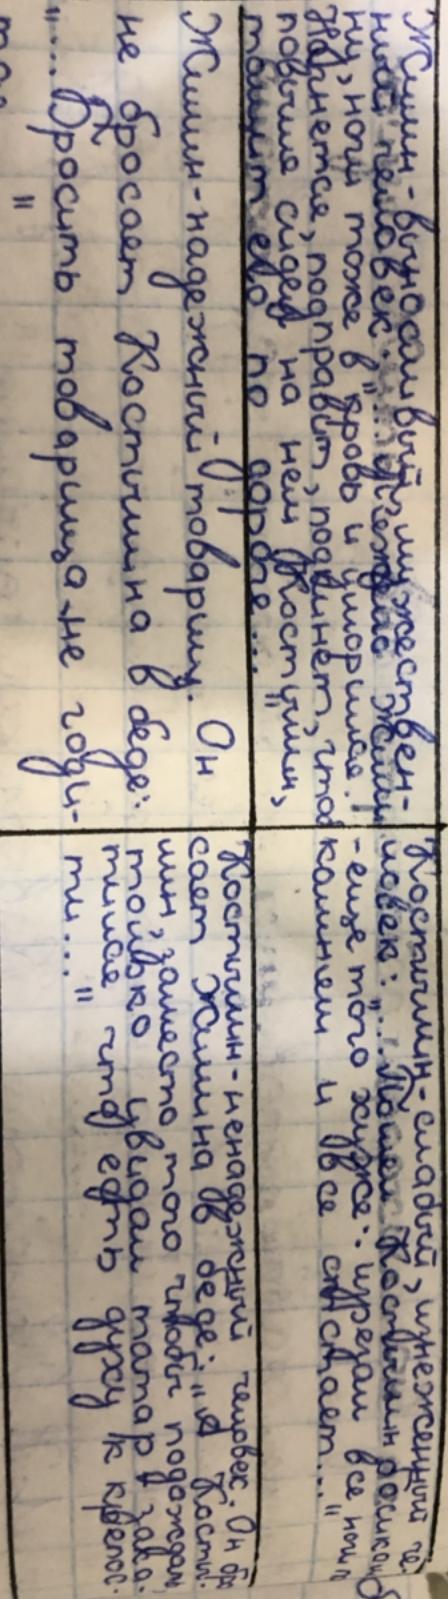 Жилин-выносливый, мужествен-
ный человек: "... Тяжело Жили-
ну, ноги тоже в крови и уморился.
Нагнется, подправит, подкинет, чтоб
повыше сидел на нем Костылин,
тащит его по дороге..."
Костылин-слабый, изнеженный че-
ловек: "... Пошел Костылин босиком
- еще того хуже: изрезал все ноги
камнем и все отстает..."
Жилин-надежный товарищ. Он
не бросает Костылина в беде:
"... Бросить товарища не годи-
Костылин-ненадежный человек. Он бро-
сает Жилина в беде: "А Косты-
лин, заместо того чтобы подождать,
только увидал татар, зака-
тился что есть духу к крепос-
ти..."